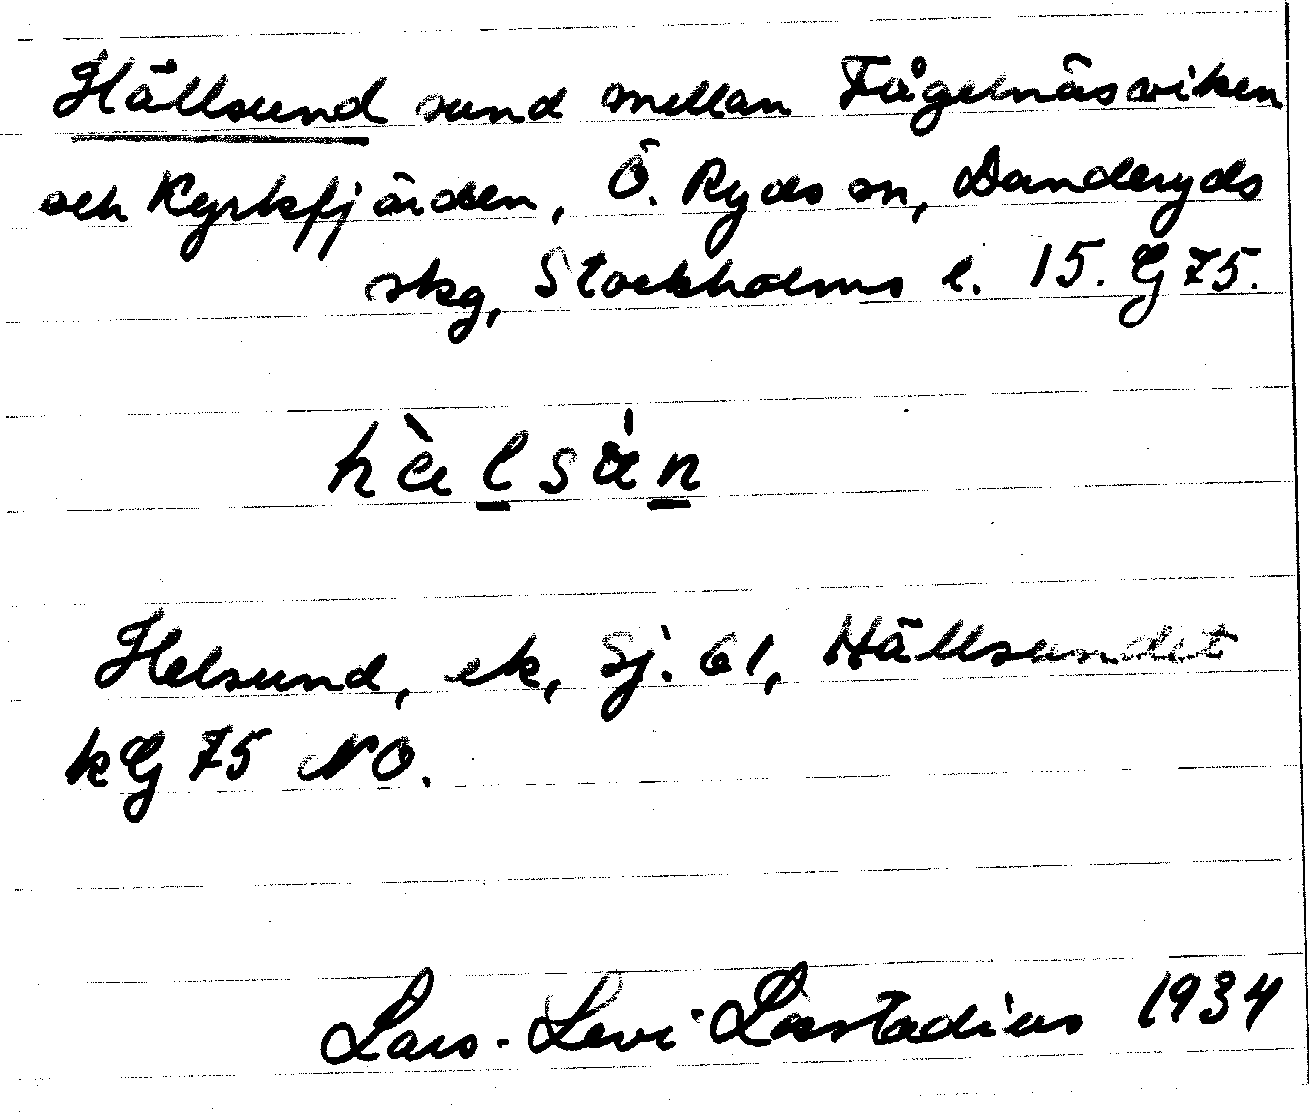 Hällsund sund mellan Fågelnäsviken
och Kyrkfjärden, Ö. Ryds sn, Danderyds
skg, Stockholms l. 15. G 75.
Helsund, ek, Sj. 61, Hällsundet
kG 75 NO.
Lars-Levi Læstadius 1934